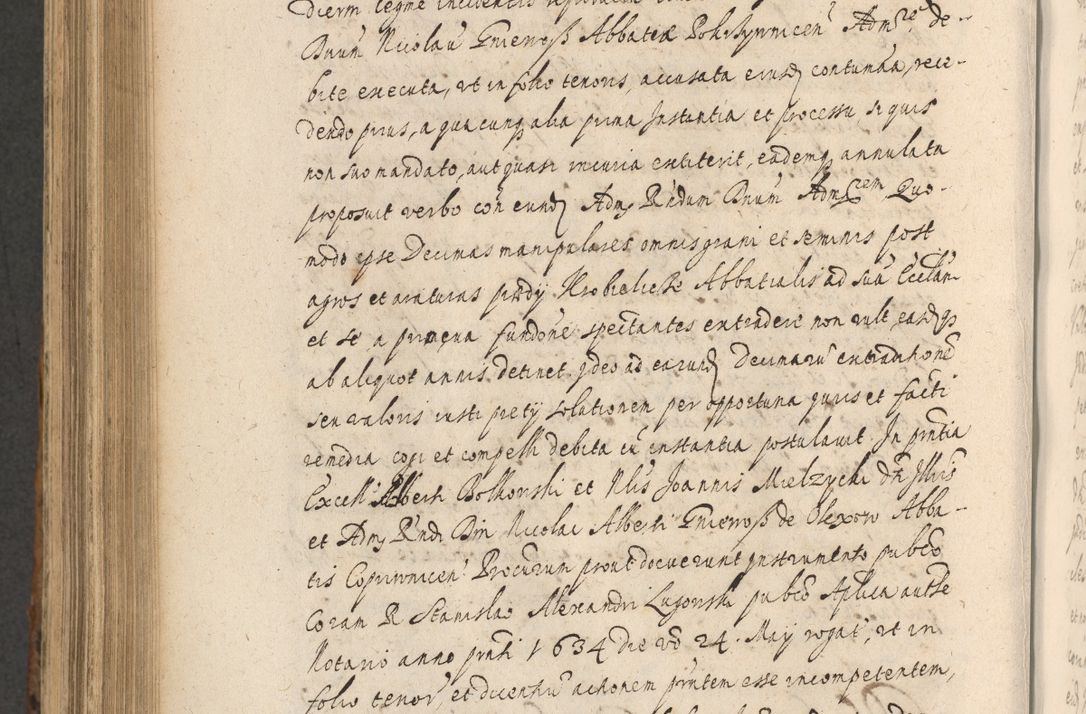 diem legitime incidentis
Dnum Nicolaū Gniewosz Abbatiæ Pokrzywnicen̄ Admrē, de-
bite executa, vt in folio tenoris, accusata eiusd contumatia, rece-
dendo prius, a quacunq alia prima Instantia et processu si quis
non suo mandato, aut quasi incuria extiterit, eademq annulata
proposuit verbo con eund Adm Rndum Dnum Admrem, Quo-
modo ipse Decimas manipulares omnis grani et seminis post
agros et araturas prædij Abbatialis ad suā Ecclām
et se a primæua fundōne spectantes extradere non vult, easdqȝ
ab aliquot annis detinet, qdeo ad earund Decimarū extraditionē
seu valoris iusti pretij solutionem per opportuna iuris et facti
remedia cogi et compelli debita cū instantia postulauit In pntia
Excell Alberti Bolkowski et Nlis Joannis Mielzycki Dn Illris
et Adm Rndi Dni Nicolai Alberti Gniewosz de Olexow Abba-
tis Copriwnicen̄ Procurum prout docuerunt instrumento pubco
Coram R Stanislao Alexandri Lugowski pubco Aplica authe
Notario anno prnti 1634 die vo 24 May rogat, vt in
folio tenor, et dicentiū actionem prntem esse incompetentem,